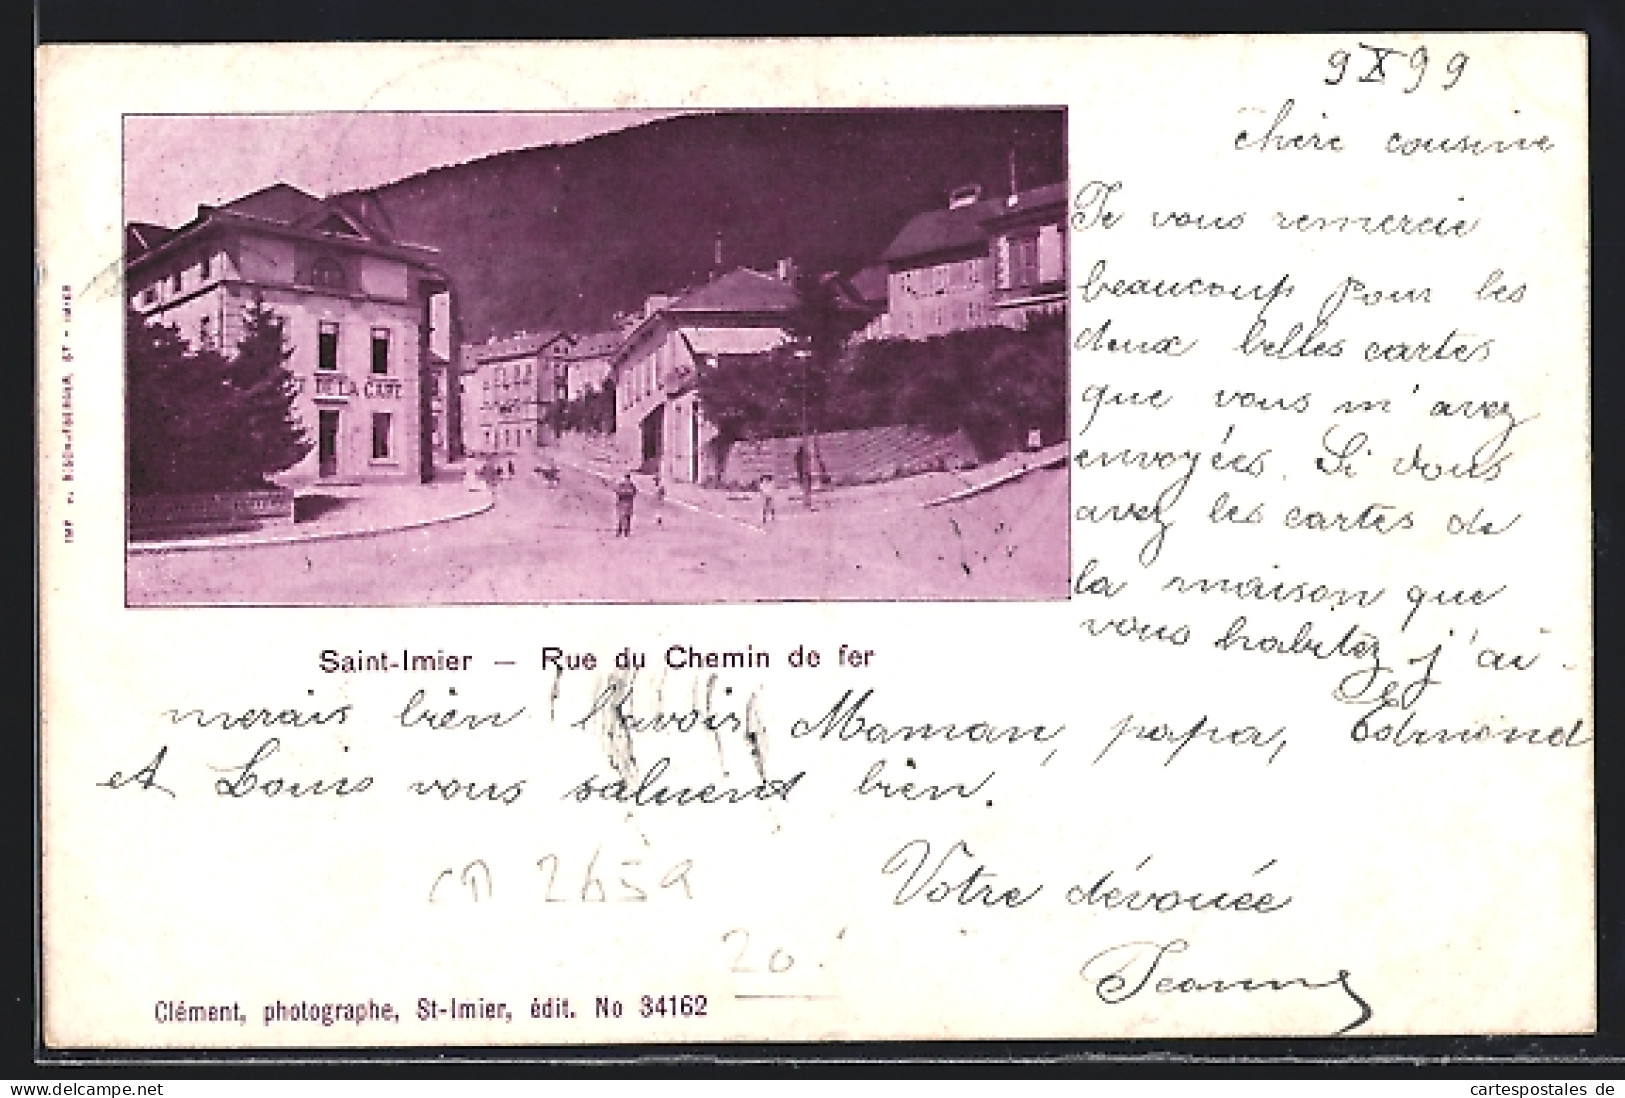 9 X 99
chère cousine
Je vous remercie
beaucoup pour les
deux belles cartes
que vous m'avez
envoyées. Si vous
avez les cartes de
la maison que
vous habitez j'ai-
merais bien l'avoir. Maman, papa, Edmond
et Louis vous saluent bien.
Votre dévouée
Jeanne
DE LA GARE
Saint-Imier — Rue du Chemin de fer
20
Clément, photographe, St-Imier, édit. No 34162
delcampe.net
cartespostales de